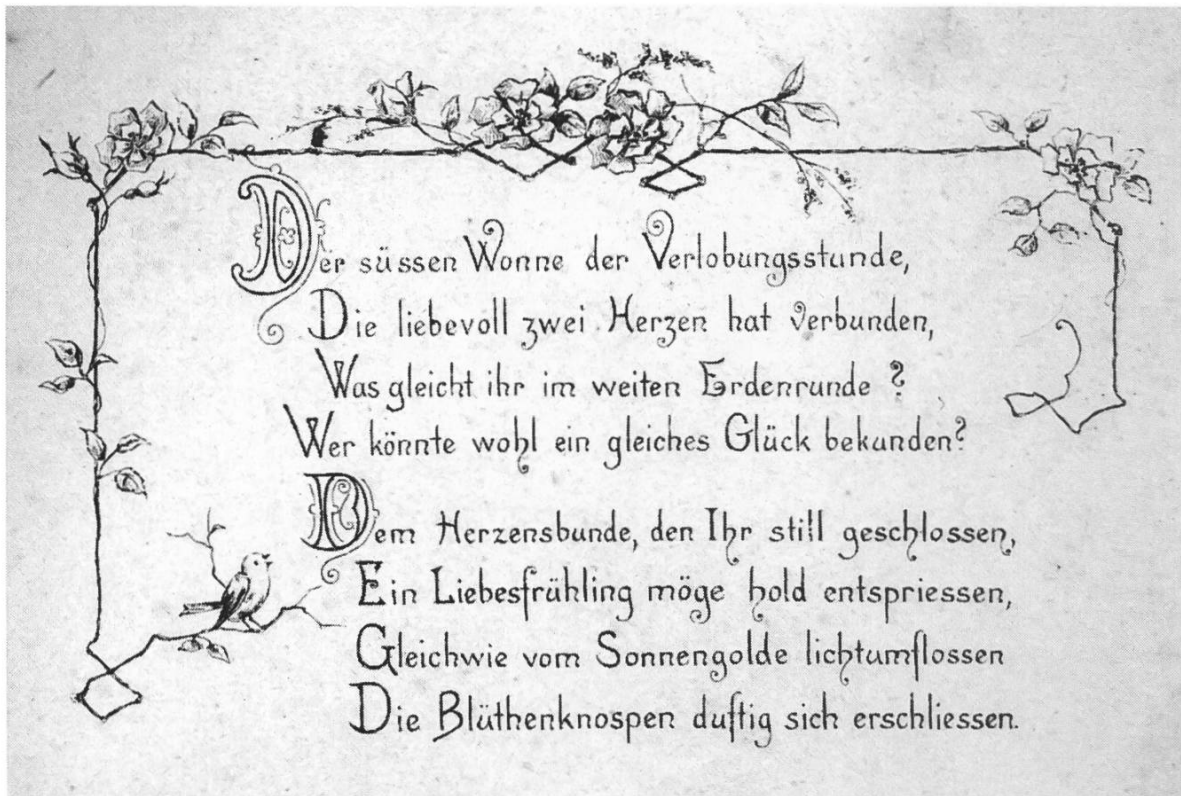 Der süssen Wonne der Verlobungsstunde,
Die liebevoll zwei Herzen hat verbunden,
Was gleicht ihr im weiten Erdenrunde ?
Wer könnte wohl ein gleiches Glück bekunden?
Dem Herzensbunde, den Ihr still geschlossen,
Ein Liebesfrühling möge hold entspriessen,
Gleichwie vom Sonnengolde lichtumflossen
Die Blüthenknospen duftig sich erschliessen.